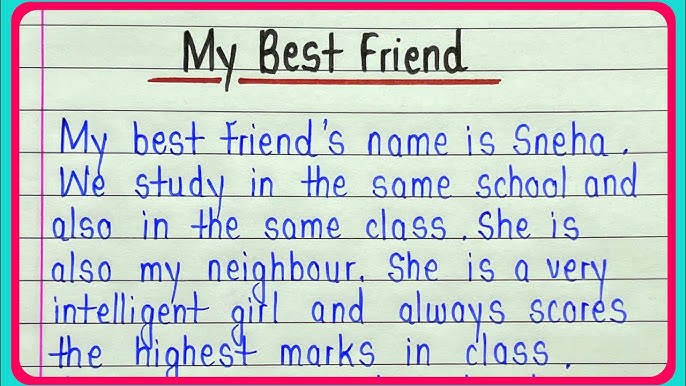 My Best Friend
My best friend's name is Sneha.
We study in the same school and
also in the same class. She is
also my neighbour. She is a very
intelligent girl and always scores
the highest marks in class.